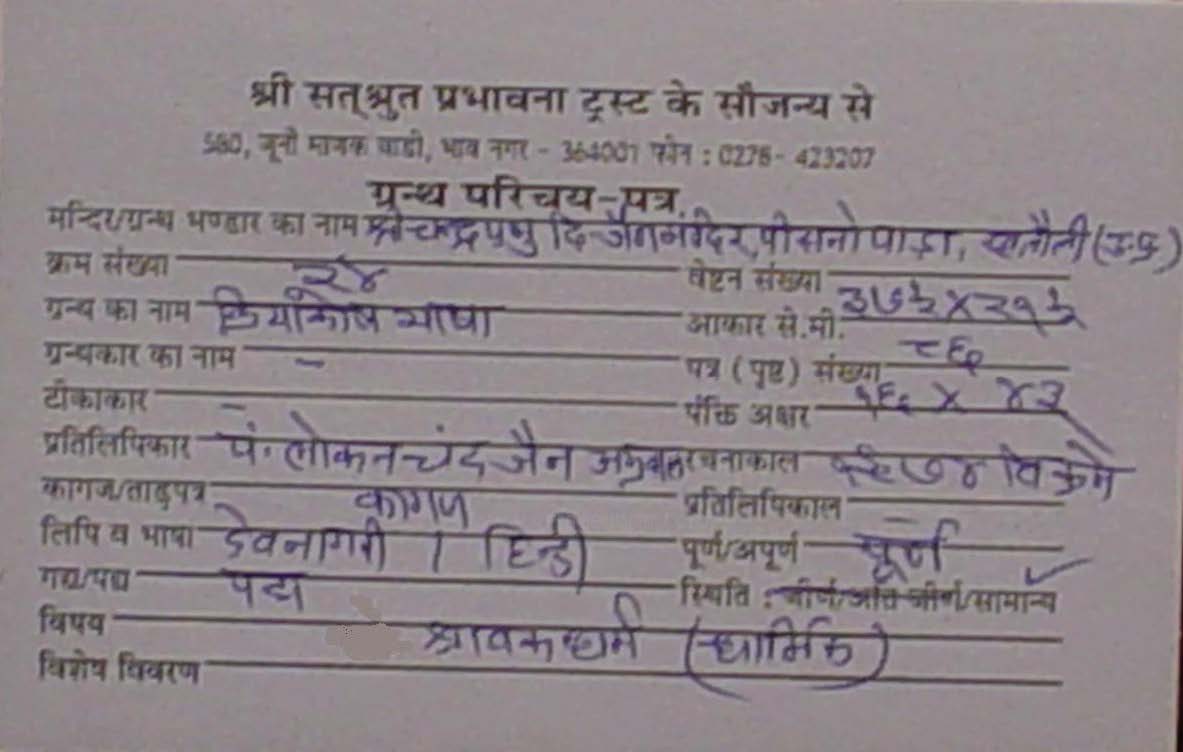 श्री सत्श्रुत प्रभावना ट्रस्ट के सौजन्य से
580, जूनी माणेक वाडी, भाव नगर - 364001 फोन : 0278- 423207
ग्रन्थ परिचय-पत्र
मन्दिर/ग्रन्थ भण्डार का नाम श्री चन्द्रप्रभु दि. जैन मंदिर, पीसनोपाड़ा, खतौली (उ.प्र.)
क्रम संख्या २४ वेष्टन संख्या
ग्रन्थ का नाम क्रियाकोष भाषा आकार से.मी. ३७½ X २१½
ग्रन्थकार का नाम - पत्र (पृष्ट) संख्या ८६
टीकाकार - पंक्ति अक्षर १६ X ४३
प्रतिलिपिकार पं. चंद जैन रचनाकाल १९७४ विक्रम
कागज/ताड़पत्र कागज प्रतिलिपिकाल -
लिपि व भाषा देवनागरी / हिन्दी पूर्ण/अपूर्ण पूर्ण
गद्य/पद्य पद्य स्थिति : जीर्ण/अति जीर्ण/सामान्य ✓
विषय श्रावकधर्म (धार्मिक)
विशेष विवरण